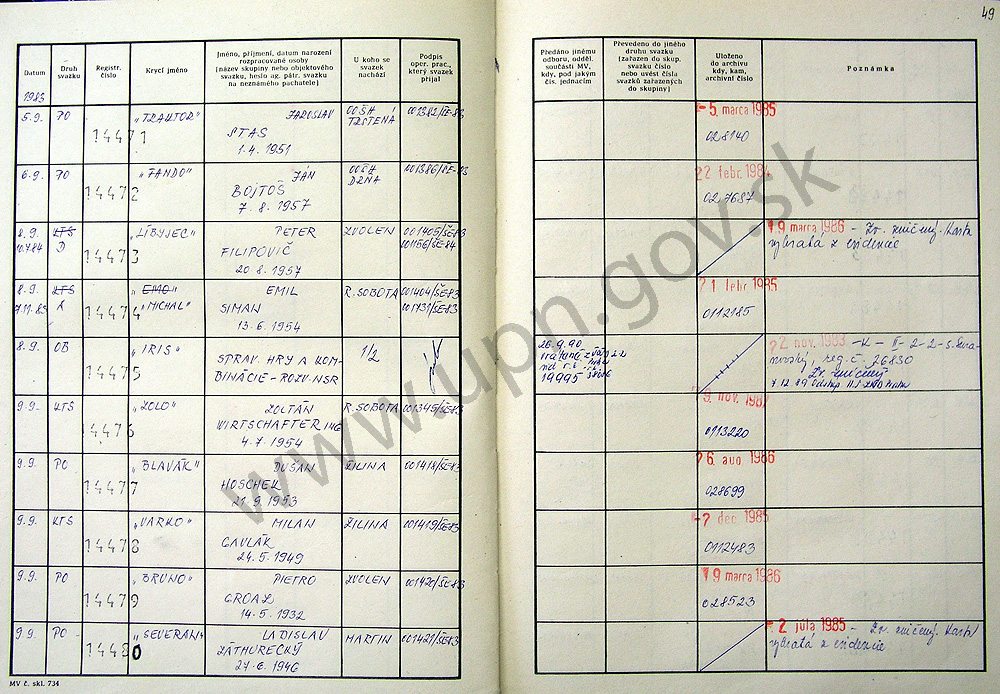 49
Datum
Druh svazku
Registr. číslo
Krycí jméno
Jméno, příjmení, datum narození
rozpracované osoby
(název skupiny nebo objektového
svazku, heslo ag. pátr. svazku
na neznámého pachatele)
U koho se
svazek
nachází
Podpis
oper. prac.,
který svazek
přijal
Předáno jinému
odboru, odděl.
součásti MV,
kdy, pod jakým
čís. jednacím
Převedeno do jiného
druhu svazku
(zařazen do skup.
svazku číslo
nebo uvést čísla
svazků zařazených
do skupiny)
Uloženo
do archivu
kdy, kam,
archivní číslo
Poznámka
1983
5.9. PO 14471 "TRAKTOR" JAROSLAV OOŠH TRSTENA 001382/ŠE-83 -5. marca 1985
STAS 028140
1.4. 1951
6.9. PO 14472 "FANDO" JÁN OOŠH 001386/ŠE-83 22 febr. 1984
BOJTOŠ 027687
7. 8. 1957
8.9. KTS 14473 "LÍBYJEC" PETER ZVOLEN 001405/ŠE-83 19 marca 1986 - Zv. zničený. Karta
10.7.84 D FILIPOVIČ 001156/ŠE-84 vybratá z evidencie
20 8. 1957
8.9. KTS 14474 "EMO" EMIL R. SOBOTA 001404/ŠE83 21 febr. 1985
7.11.83 A "MICHAL" SIMAN 001731/ŠE-83 0112185
13. 6. 1954
8.9. OB 14475 "IRIS" SPRAV. HRY A KOM- 1/2 26.9.90 22 nov. 1983 -K-II-2-2-S.
BINÁCIE - ROZV. NSR 19995 reg. č. 26830
Zv. zničený
9.9. KTS 14476 "ZOLO" ZOLTÁN R. SOBOTA 001345/ŠE83 9. nov. 1987
WIRTSCHAFTER ING 0113220
4. 7 1954
9.9. PO 14477 "BLAVÁK" DUŠAN ŽILINA 001418/ŠE83 26 aug. 1986
HOSCHEK 028699
21. 9. 1953
9.9. KTS 14478 "VARKO" MILAN ŽILINA 001419/ŠE83 -7 dec. 1985
GAVLÁK 0112483
24. 5. 1949
9.9. PO 14479 "BRUNO" PIETRO ZVOLEN 001420/ŠE83 19 marca 1986
028523
14. 5. 1932
9.9. PO 14480 "SEVERAN" LADISLAV MARTIN 001421/ŠE83 -2 júla 1985 - Zv. zničený. Karta
ZÁTHURECKÝ vybratá z evidencie
27. 6. 1946
MV č. skl. 734
www.upn.gov.sk